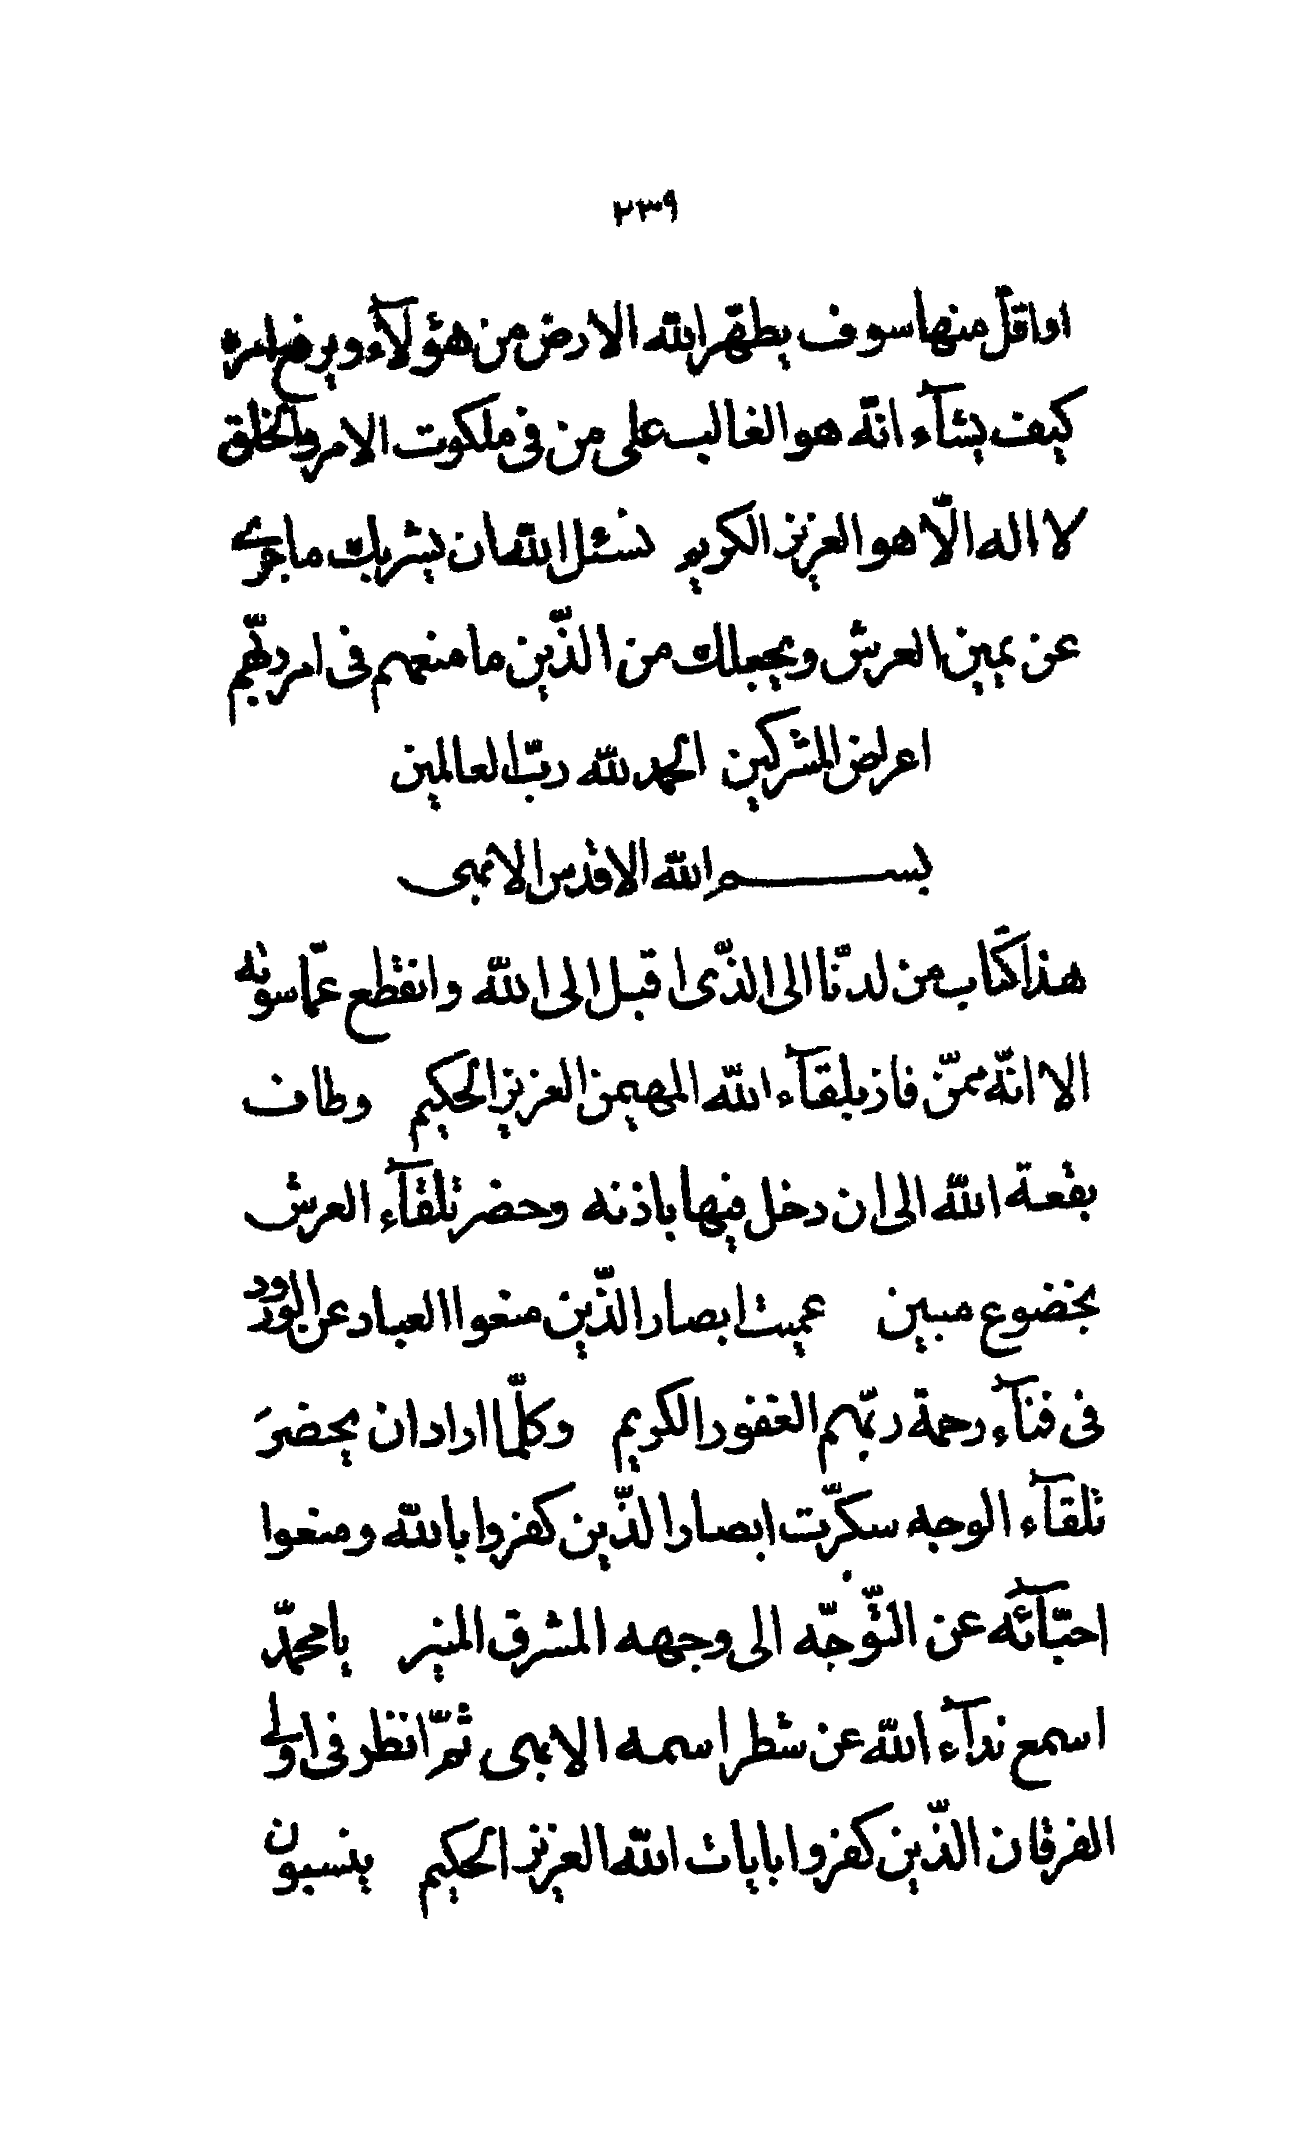 ٢٣٩
او اقلّ منها سوف يطهّر الله الارض من هؤلآء و يرفع امره
كيف يشآء انّه هو الغالب على من فى ملكوت الامر والخلق
لا اله الّا هو العزيز الكريم نسئل الله ان يشربك ما جرى
عن يمين العرش و يجعلك من الّذين ما منعهم فى امر ربّهم
اعراض المشركين الحمد لله ربّ العالمين
بســـــم الله الاقدس الابهى
هذا كتاب من لدنّا الى الّذى اقبل الى الله و انقطع عمّا سوٰىه
الا انّه ممّن فاز بلقآء الله المهيمن العزيز الحكيم و طاف
بقعة الله الى ان دخل فيها باذنه و حضر تلقآء العرش
بخضوع مبين عميت ابصار الّذين منعوا العباد عن الورود
فى فنآء رحمة ربّهم الغفور الكريم و كلّما اراد ان يحضرَ
تلقآء الوجه سكّرت ابصار الّذين كفروا بالله و منعوا
احبّآئه عن التّوجّه الى وجهه المشرق المنير يا محمّد
اسمع ندآء الله عن شطر اسمه الابهى ثمّ انظر فى اولى
الفرقان الّذين كفروا بايات الله العزيز الحكيم ينسبون